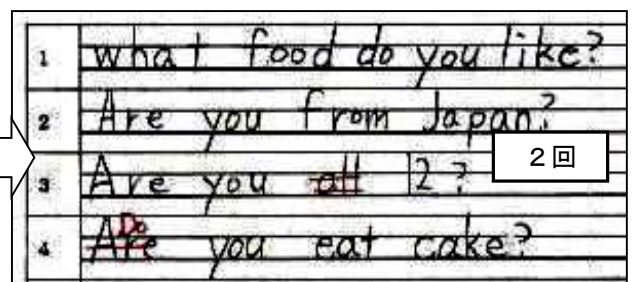 1 what food do you like?
2 Are you from Japan?
2回
3 Are you all 12?
Do
4 Are you eat cake?